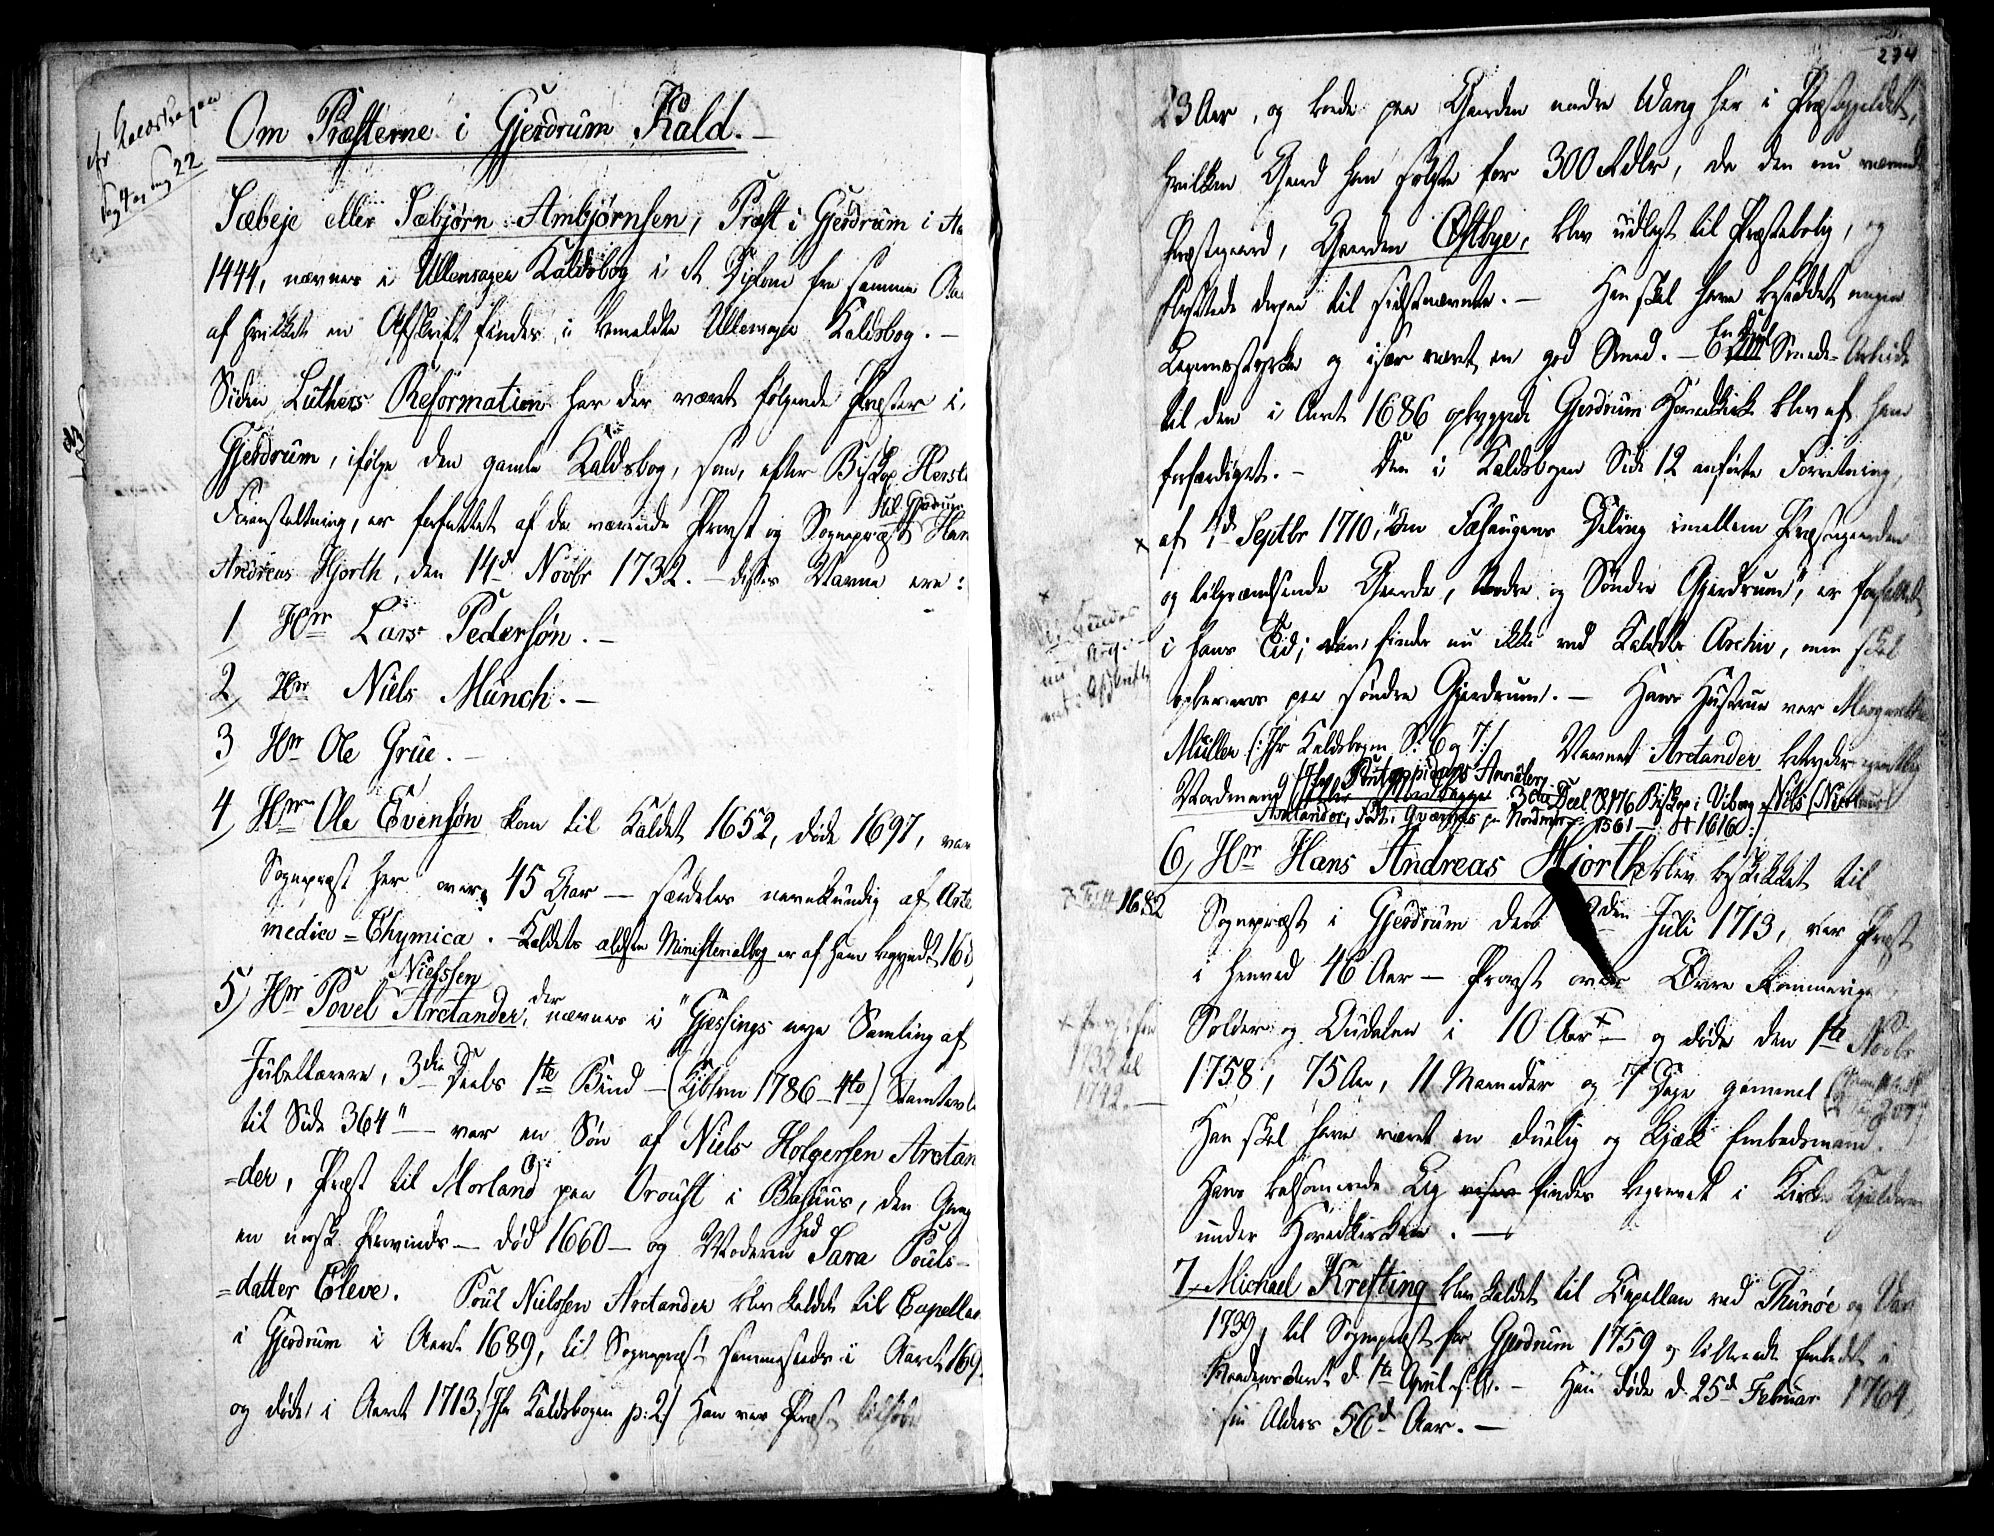 Om Præsterne i Gjerdrum Kald. —
Sæbeje eller Sæbjørn Ambjørnsen, Præst i Gjerdrum i
1444, nævnes i Ullensager Kaldsbog i et Diplom fra samme
af hvilket en Afskrift findes i bemeldte Ullensager Kaldsbog. —
Siden Luthers Reformation har der været følgende Præster i
Gjerdrum, ifølge den gamle Kaldsbog, som, efter Biskop Hersle
til Gjerdrum
Foranstaltning, er forfattet af da værende Provst og Sognepræst Han
Andreas Hjorth, den 14d Novbr 1732. — disses Navne ere:
1, Hr Lars Pedersøn. —
2, Hr Niels Münch. —
3, Hr Ole Grüe. —
4, Hr Ole Evensøn kom til Kaldet 1652, døde 1697, var
Sognepræst her over 45 Aar — særdeles navnkundig af Arte
medico = Chymica. — Kaldets ældste Ministerialbog er af ham begyndt
Nielssen
5, Hr Povel Arctander, der nævnes i "Gjessings nye Samling af
Jubellærere, 3die Deels 1te Bind — (Kjbhvn 1786 — 4to) Stamtavle
til Side 364" — var en Søn af Niels Holgersen Arctan
=der, Præst til Morland paa Oroust i Bahuus, den Gang
en norsk Provinds — død 1660 — og Moderen hed Sara Pouls-
=datter Cleve. Poul Nielssen Arctander blev kaldet til Capellan
i Gjerdrum i Aaret 1689, til Sognepræst sammesteds i Aaret 169
og døde i Aaret 1713 (Jfr Kaldsbogen p: 2) Han var Præst
274
23 Aar, og boede paa Gaarden nedre Wang her i Præstegjeldet,
hvilken Gaard han solgte for 300 Rdlr, da den nu værende
Præstegaard, Gaarden Østbye, blev udlagt til Præstebolig, og
flyttede derpaa til sidstnævnte. — Han skal have besiddet megen
Legemsstyrke og især været en god Smed. — En Deel Smede-Arbeide
til den i Aaret 1686 opbyggede Gjerdrum Hovedkirke blev af ham
forfærdiget. — Den i Kaldsbogen Side 12 anførte Forretning,
af 1d Septbr 1710, "om Fæhaugens Deling imellem Præstegaarden
og tilgrændsende Gaarde, Nordre og Søndre Gjerdrum", er forfattet
i hans Tid; den findes nu ikke ved Kaldets Archiv, men skal
opbevares paa søndre Gjerdrum. — Hans Hustrue var Margrethe
Müller (: Jfr Kaldsbogen S: 6 og 7:) Navnet Arctander betyder egentlig
Nordmand (Jfr Pontoppidans Annaler
3die Deel S. 176 Biskop i Viborg Niels (Nicolaus)
Arctander, født i Nordmør 1561 — † 1616:)
6, Hr Hans Andreas Hjorth blev beskikket til
1682
Sognepræst i Gjerdrum den den Juli 1713, var Præst
i henved 46 Aar — Provst over Øvre Rommerige
Solder og Oudalen i 10 Aar + og døde den 1te Novbr
1732 til
1742. —
1758, 75 Aar, 11 Maaneder og 7 Dage gammel
Han skal have været en duelig og kjæk Embedsmand.
Hans balsamerede Lig findes begravet i Kirke Kjelderen
under Hovedkirken. —
7, Michael Krefting blev kaldet til Capellan ved Thunøe og
1739, til Sognepræst for Gjerdrum 1759 og tiltraadte Embedet i
d. 1te April s. A. — Han døde d. 25d Februar 1764,
sin Alders 56d Aar. —